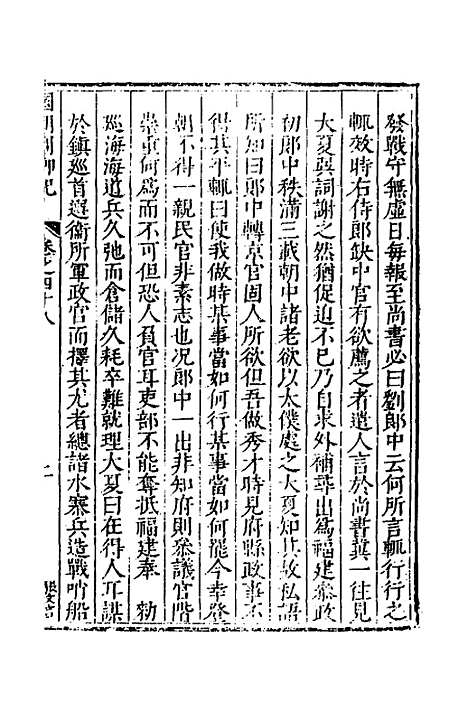 發戰守無虛日每報至尚書必曰劉郎中云何所言輒行行之
輒效時右侍郎缺中官有欲薦之者遣人言於尚書冀一往見
大夏巽詞謝之然猶促迫不已乃自求外補舉出為福建叅政
初郎中秩滿三載朝中諸老欲以太僕處之大夏知其故私語
所知曰郎中轉京官固人所欲但吾做秀才時見府縣政事不
得其平輒曰使我做時某事當如何行某事當如何罷今幸登
朝不得一親民官非素志也况郎中一出非知府則叅議官階
崇卑何為而不可但恐人負官耳吏部不能奪抵福建奉 勑
廵海海道兵久弛而倉儲久耗卒難就理大夏曰在得人耳謀
於鎮廵首選衛所軍政官而擇其尤者總諸水寨兵造戰哨船
卷之四十八